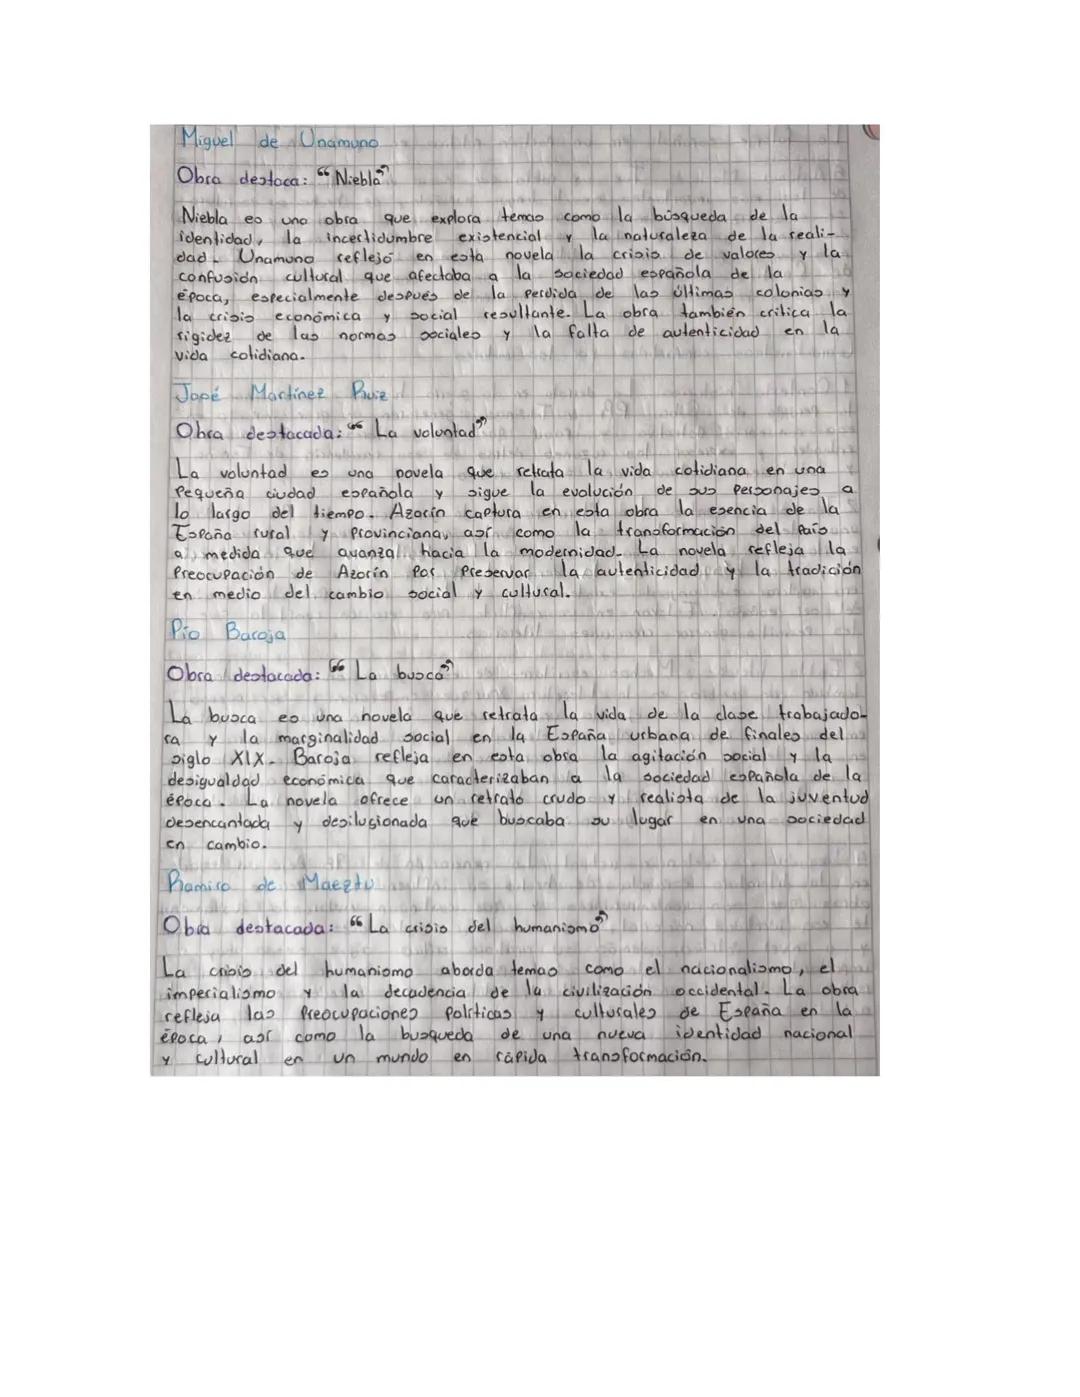 Miguel de Unamuno
Obra destaca: “Niebla”
Niebla es una obra que explora temas como la búsqueda de la
identidad, la incertidumbre existencial y la naturaleza de la reali-
dad. Unamuno reflejó en esta novela la crisis de valores y la
confusión cultural que afectaba a la sociedad española de la
época, especialmente después de la perdida de las últimas colonias y
la crisis económica y social resultante. La obra también critica la
rigidez de las normas sociales y la falta de autenticidad en la
vida cotidiana.
José Martínez Ruiz
Obra destacada: “La voluntad”
La voluntad es una novela que retrata la vida cotidiana en una
pequeña ciudad española y sigue la evolución de sus personajes a
lo largo del tiempo. Azorín captura en esta obra la esencia de la
España rural y provinciana, así como la transformación del país
a medida que avanza hacia la modernidad. La novela refleja la
preocupación de Azorín por preservar la autenticidad y la tradición
en medio del cambio social y cultural.
Pío Baroja
Obra destacada: “La busca”
La busca es una novela que retrata la vida de la clase trabajado-
ra y la marginalidad social en la España urbana de finales del
siglo XIX. Baroja refleja en esta obra la agitación social y la
desigualdad económica que caracterizaban a la sociedad española de la
época. La novela ofrece un retrato crudo y realista de la juventud
desencantada y desilusionada que buscaba su lugar en una sociedad
en cambio.
Ramiro de Maeztu
Obra destacada: “La crisis del humanismo”
La crisis del humanismo aborda temas como el nacionalismo, el
imperialismo y la decadencia de la civilización occidental. La obra
refleja las preocupaciones políticas y culturales de España en la
época, así como la busqueda de una nueva identidad nacional
y cultural en un mundo en rápida transformación.